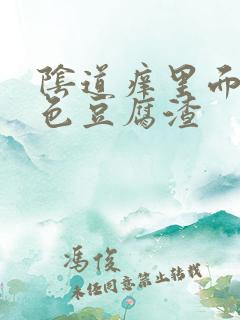 陰道痒里而
色豆腐渣
冯俊
未经同意禁止转载